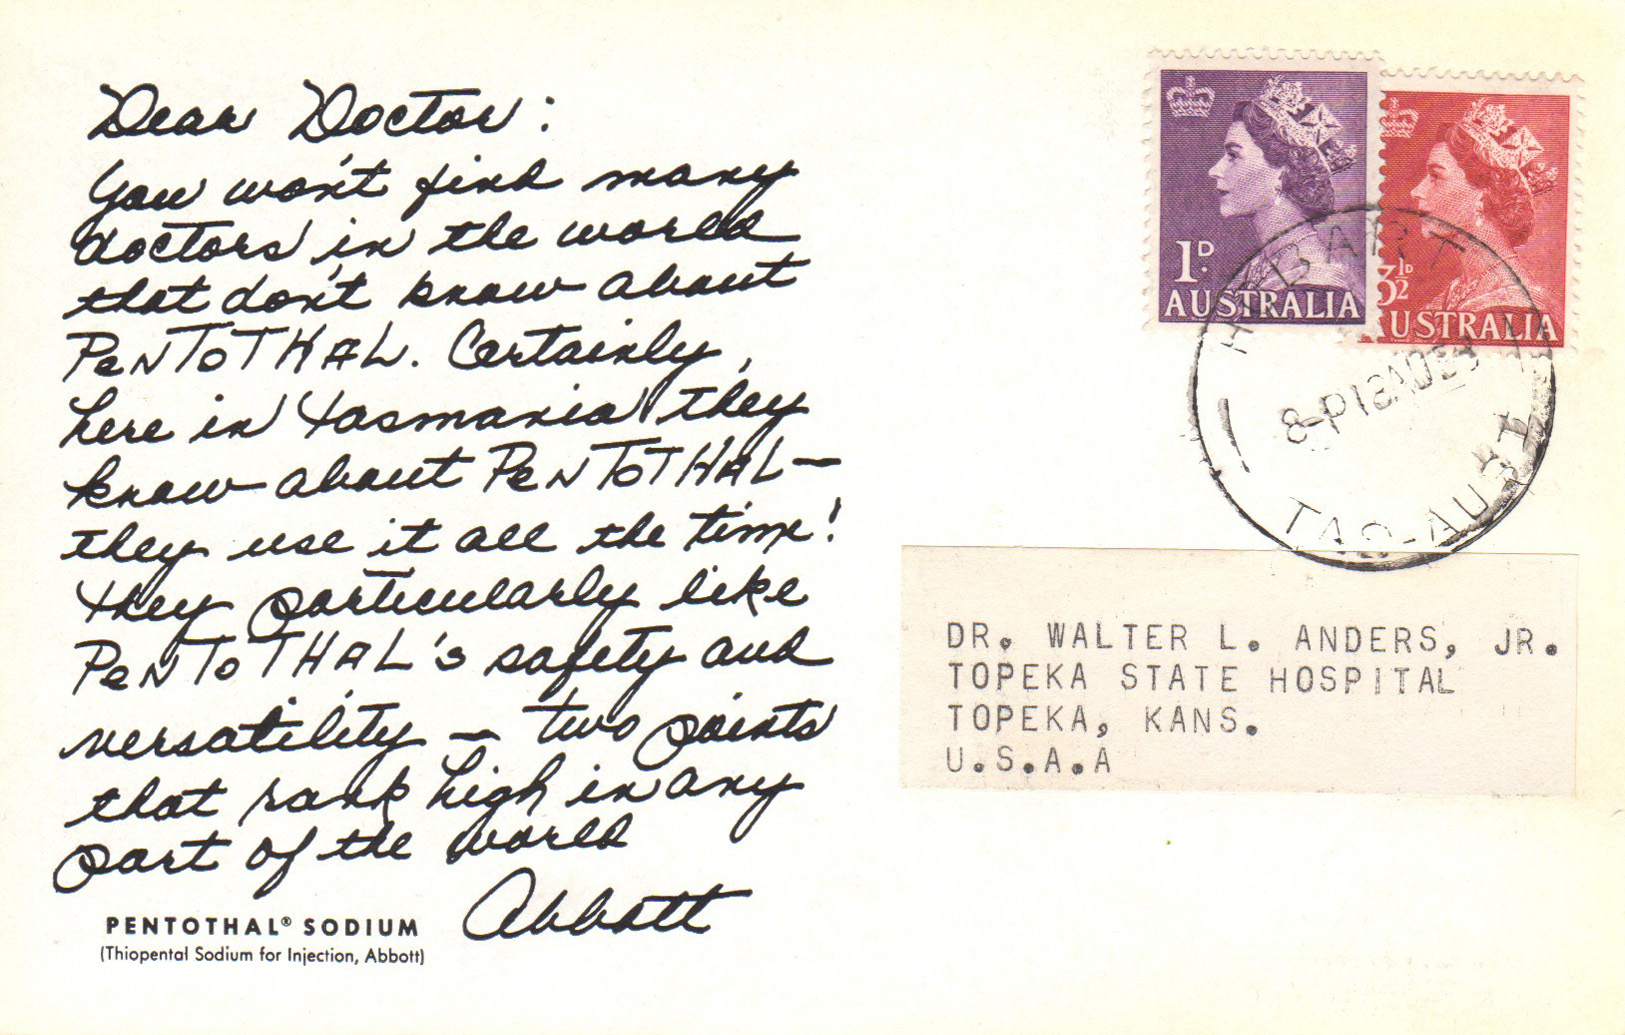 Dear Doctor:
You won't find many
doctors in the world
that don't know about
PENTOTHAL. Certainly,
here in Tasmania they
know about PENTOTHAL—
they use it all the time!
They particularly like
PENTOTHAL's safety and
versatility — two points
that rank high in any
part of the world
Abbott
PENTOTHAL® SODIUM
(Thiopental Sodium for Injection, Abbott)
1D.
AUSTRALIA
3½D
AUSTRALIA
HOBART
TAS-AUST
DR. WALTER L. ANDERS, JR.
TOPEKA STATE HOSPITAL
TOPEKA, KANS.
U.S.A.A